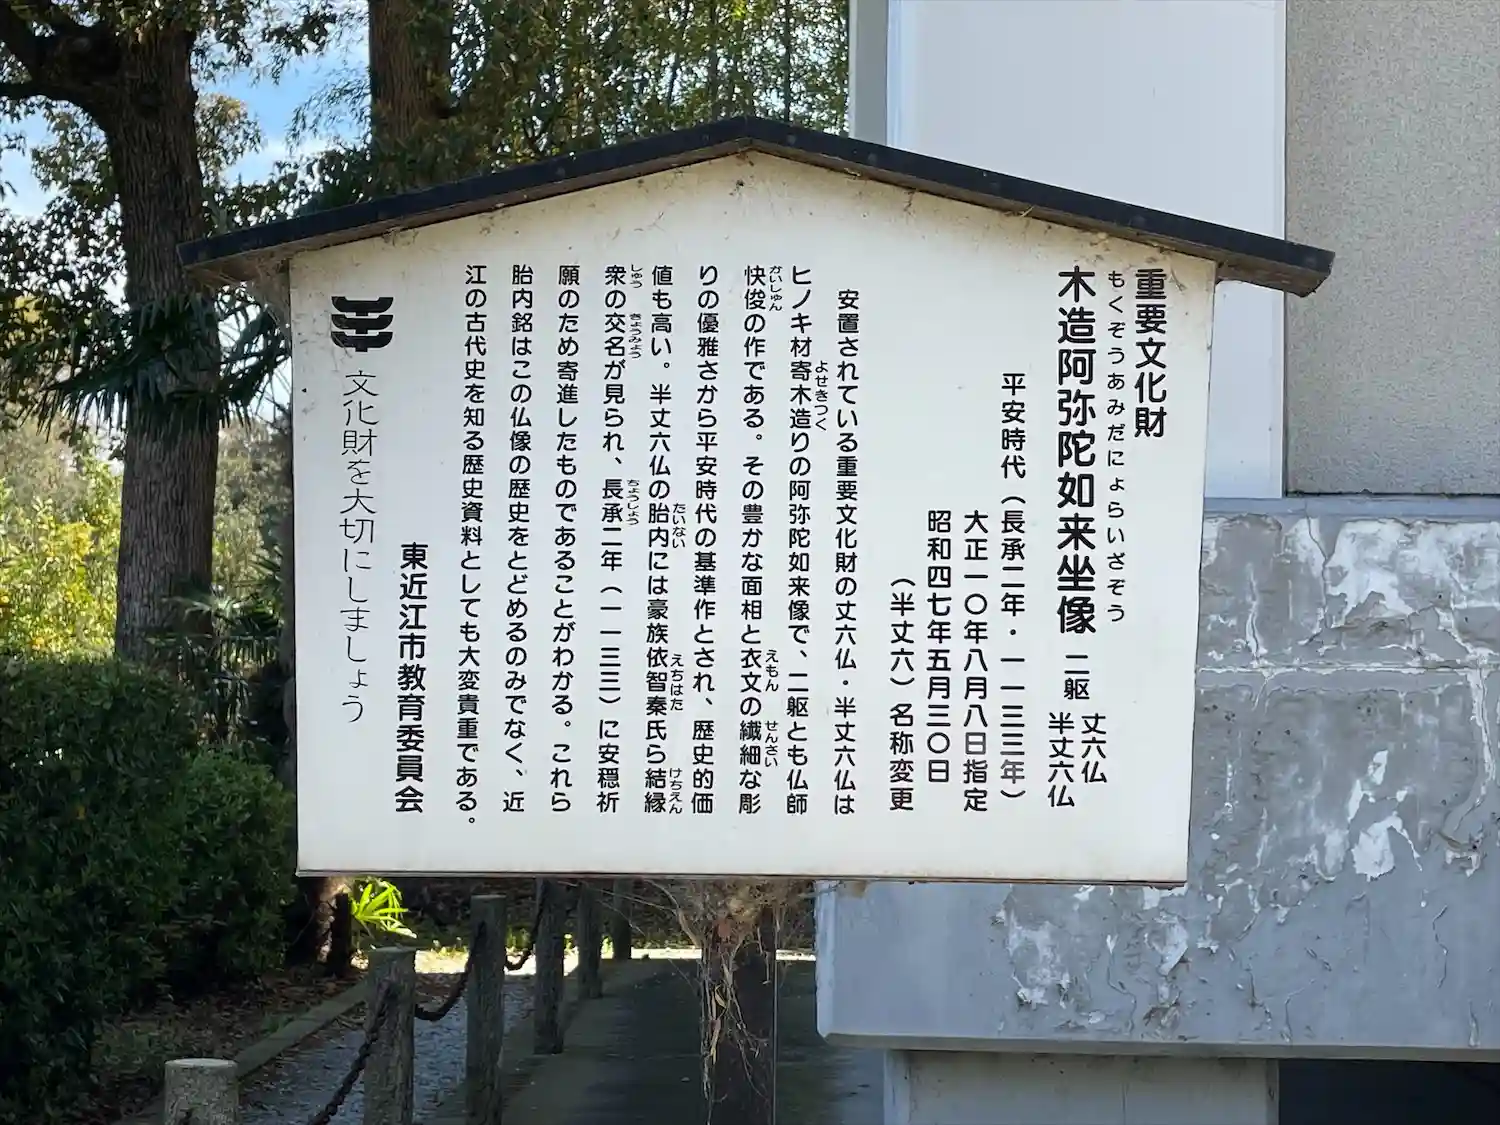 重要文化財
もくぞうあみだにょらいざぞう
木造阿弥陀如来坐像 二躯 丈六仏
半丈六仏
平安時代（長承二年・一一三三年）
大正一〇年八月八日指定
昭和四七年五月三〇日
（半丈六）名称変更
安置されている重要文化財の丈六仏・半丈六仏は
よせきつく
ヒノキ材寄木造りの阿弥陀如来像で、二躯とも仏師
かいしゅん えもん せんさい
快俊の作である。その豊かな面相と衣文の繊細な彫
りの優雅さから平安時代の基準作とされ、歴史的価
たいない えちはた けちえん
値も高い。半丈六仏の胎内には豪族依智秦氏ら結縁
しゅう きょうみょう ちょうしょう
衆の交名が見られ、長承二年（一一三三）に安穏祈
願のため寄進したものであることがわかる。これら
胎内銘はこの仏像の歴史をとどめるのみでなく、近
江の古代史を知る歴史資料としても大変貴重である。
東近江市教育委員会
文化財を大切にしましょう